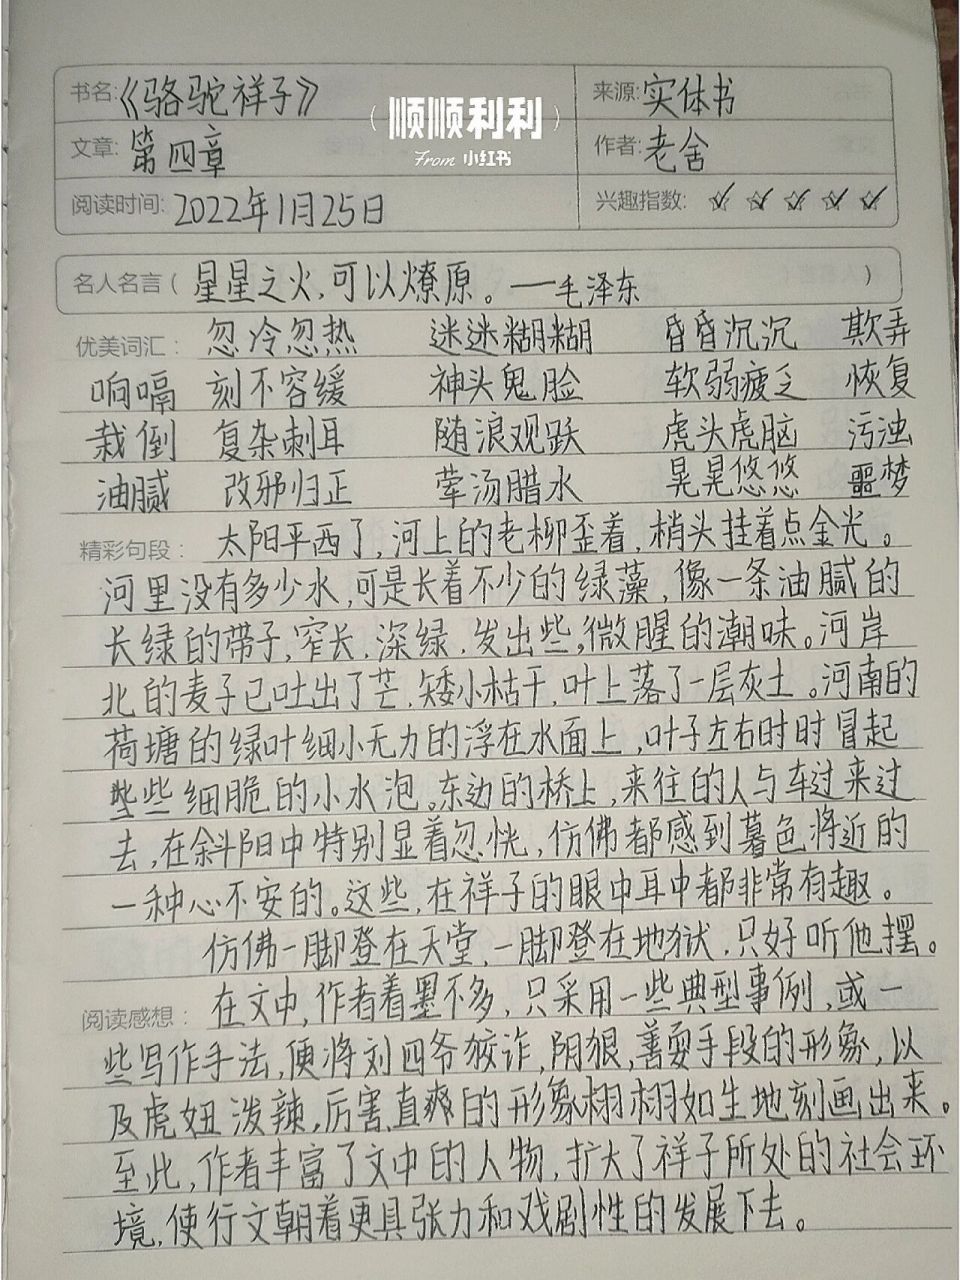 书名:《骆驼祥子》 来源:实体书
顺顺利利
From 小红书
文章:第四章 作者:老舍
阅读时间:2022年1月25日 兴趣指数:☆☆☆☆☆
名人名言(星星之火,可以燎原。——毛泽东)
优美词汇:忽冷忽热 迷迷糊糊 昏昏沉沉 欺弄
响嗝 刻不容缓 神头鬼脸 软弱疲乏 恢复
栽倒 复杂刺耳 随浪观跃 虎头虎脑 污浊
油腻 改邪归正 荤汤腊水 晃晃悠悠 噩梦
精彩句段:太阳平西了,河上的老柳歪着,梢头挂着点金光。
河里没有多少水,可是长着不少的绿藻,像一条油腻的
长绿的带子,窄长,深绿,发出些微腥的潮味。河岸
北的麦子已吐出了芒,矮小枯干,叶上落了一层灰土。河南的
荷塘的绿叶细小无力的浮在水面上,叶子左右时时冒起
些些细脆的小水泡。东边的桥上,来往的人与车过来过
去,在斜阳中特别显着忽恍,仿佛都感到暮色将近的
一种心不安的。这些,在祥子的眼中耳中都非常有趣。
仿佛一脚登在天堂,一脚登在地狱,只好听他摆。
阅读感想:在文中,作者着墨不多,只采用一些典型事例,或一
些写作手法,便将刘四爷狡诈,阴狠,善耍手段的形象,以
及虎妞泼辣,厉害,直爽的形象栩栩如生地刻画出来。
至此,作者丰富了文中的人物,扩大了祥子所处的社会环
境,使行文朝着更具张力和戏剧性的发展下去。